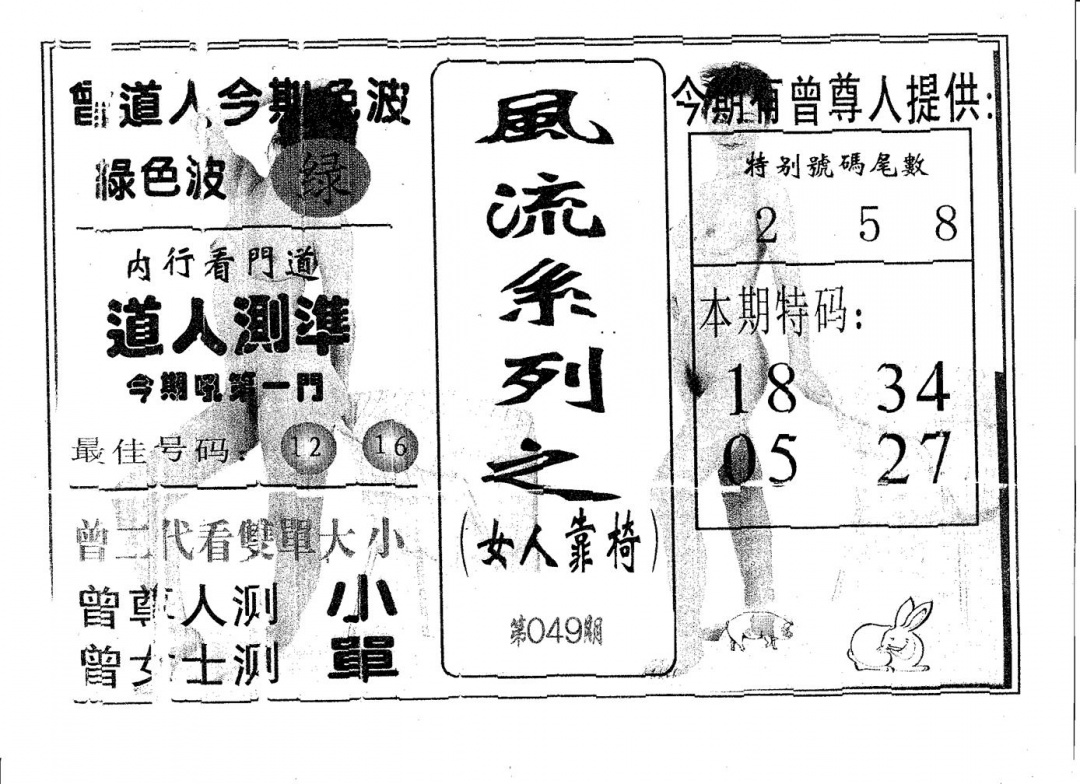 曾道人今期色波
綠色波 绿
内行看門道
道人測準
今期吼第一門
最佳号码: 12 16
曾二代看雙單大小
曾尊人测 小
曾女士测 單
風流系列之
(女人靠椅)
第049期
今期有曾尊人提供:
特别號碼尾數
2 5 8
本期特码:
18 34
05 27